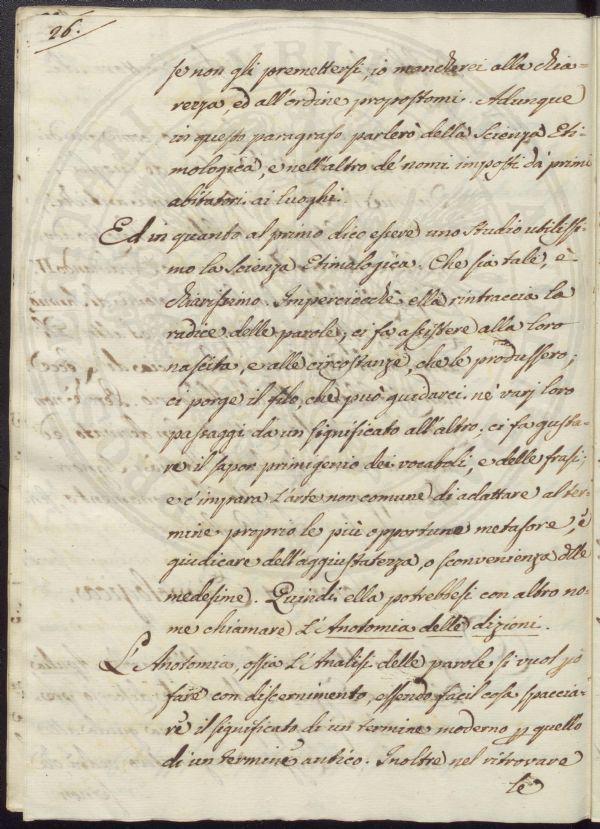 26.
se non gli premettessi, io mancherei alla chia-
rezza, ed all'ordine propostomi. Adunque
in questo paragrafo parlerò della Scienza Eti-
mologica, e nell'altro de' nomi imposti da' primi
abitatori ai luoghi.
Ed in quanto al primo dico essere uno studio utilissi-
mo la Scienza Etimologica. Che sia tale, è
chiarissimo. Imperciocchè ella rintraccia la
radice delle parole; ci fà assistere alla loro
nascita, e alle circostanze, che le produssero;
ci porge il filo, che può guidarci ne' varj loro
passaggi da un significato all'altro; ci fa gusta-
re il sapor primigenio dei vocaboli, e delle frasi;
e c'impara l'arte non comune di adattare al ter-
mine proprio le più opportune metafore, e
giudicare dell'aggiustatezza, o sconvenienza delle
medesime. Quindi ella potrebbesi con altro no-
me chiamare l'Anotomia delle dizioni.
L'Anotomia, ossia l'Analisi delle parole si vuol però
fare con discernimento, essendo facil cosa spaccia-
re il significato di un termine moderno p quello
di un termine antico. Inoltre nel ritrovare
le